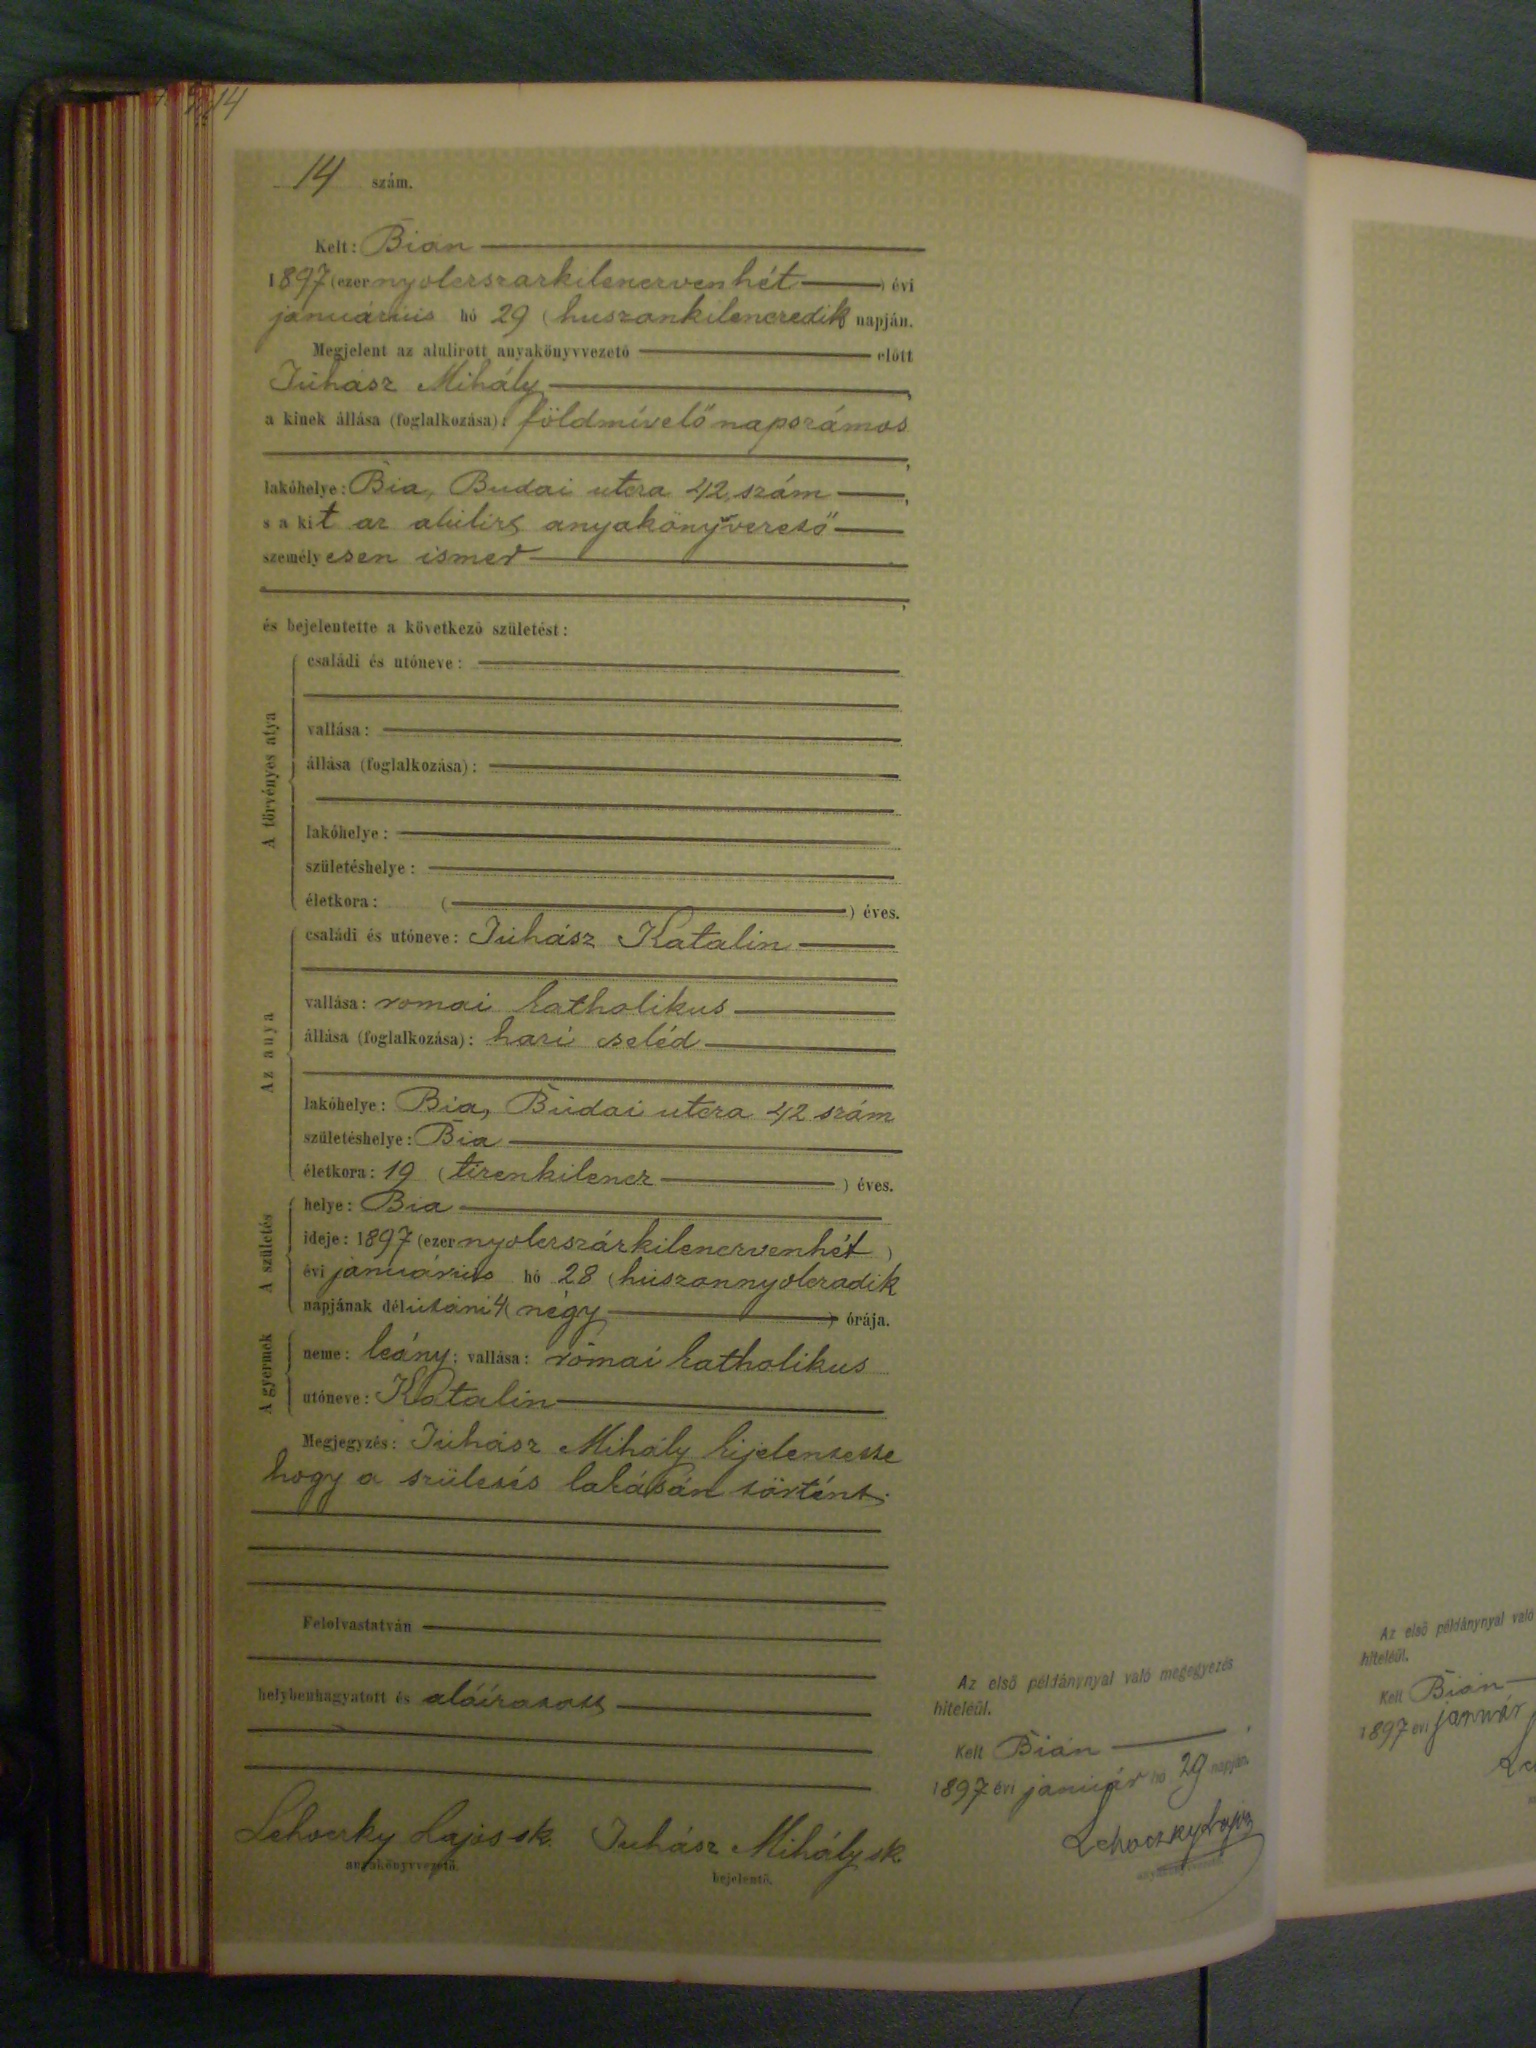 14
14 szám.
Kelt: Bián
1897 (ezernyolczszázkilenczvenhét) évi
januárius hó 29 (huszonkilenczedik napján.
Megjelent az alulirott anyakönyvvezető előtt
Juhász Mihály,
a kinek állása (foglalkozása): földmívelő napszámos
,
lakóhelye: Bia, Budai utcza 42 szám,
s a kit az alulirt anyakönyvvezető
személyesen ismer
,
és bejelentette a következő születést:
A törvényes atya
családi és utóneve:
vallása:
állása (foglalkozása):
lakóhelye:
születéshelye:
életkora: ( ) éves.
Az anya
családi és utóneve: Juhász Katalin
vallása: romai katholikus
állása (foglalkozása): hazi cseléd
lakóhelye: Bia, Budai utcza 42 szám
születéshelye: Bia
életkora: 19 (tizenkilencz) éves.
A születés
helye: Bia
ideje: 1897 (ezernyolczszázkilenczvenhét)
évi januárius hó 28 (huszonnyolczadik
napjának délutáni 4 (négy) órája.
A gyermek
neme: leány; vallása: római katholikus
utóneve: Katalin
Megjegyzés: Juhász Mihály kijelentette
hogy a születés lakásán történt.
Felolvastatván
helybenhagyatott és aláiratott
Lehoczky Lajos sk. Juhász Mihály sk.
anyakönyvvezető. bejelentő.
Az első példánynyal való megegyezés
hiteléül.
Kelt Bián
1897 évi január hó 29 napján.
Lehoczky Lajos
anyakönyvvezető.
Az első példánynyal való
hiteléül.
Kelt Bián
1897 évi január